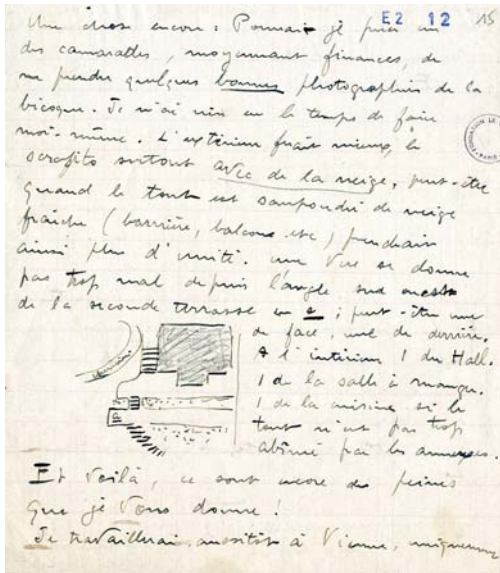 E2 12 15
Une chose encore : Pourrais je prier un
des camarades, moyennant finances, de
me prendre quelques bonnes photographies de la
bicoque. Je n'ai rien eu le temps de faire
moi-même. L'extérieur frais mieux, le
scrafito surtout avec de la neige, peut-être
quand le tout est saupoudré de neige
fraiche (barrière, balcons etc) prendrait
ainsi plus d'unité. une vue se donne
pas trop mal depuis l'angle sud ouest
de la seconde terrasse en ; peut-être une
de face, une de derrière.
A l'intérieur 1 du Hall.
1 de la salle à manger.
1 de la cuisine, si le
tout n'est pas trop
abîmé par les annexes.
Et voilà, ce sont encore des peines
que je vous donne !
Je travaillerai aussitôt à Vienne, uniquement
FONDATION LE
PARIS